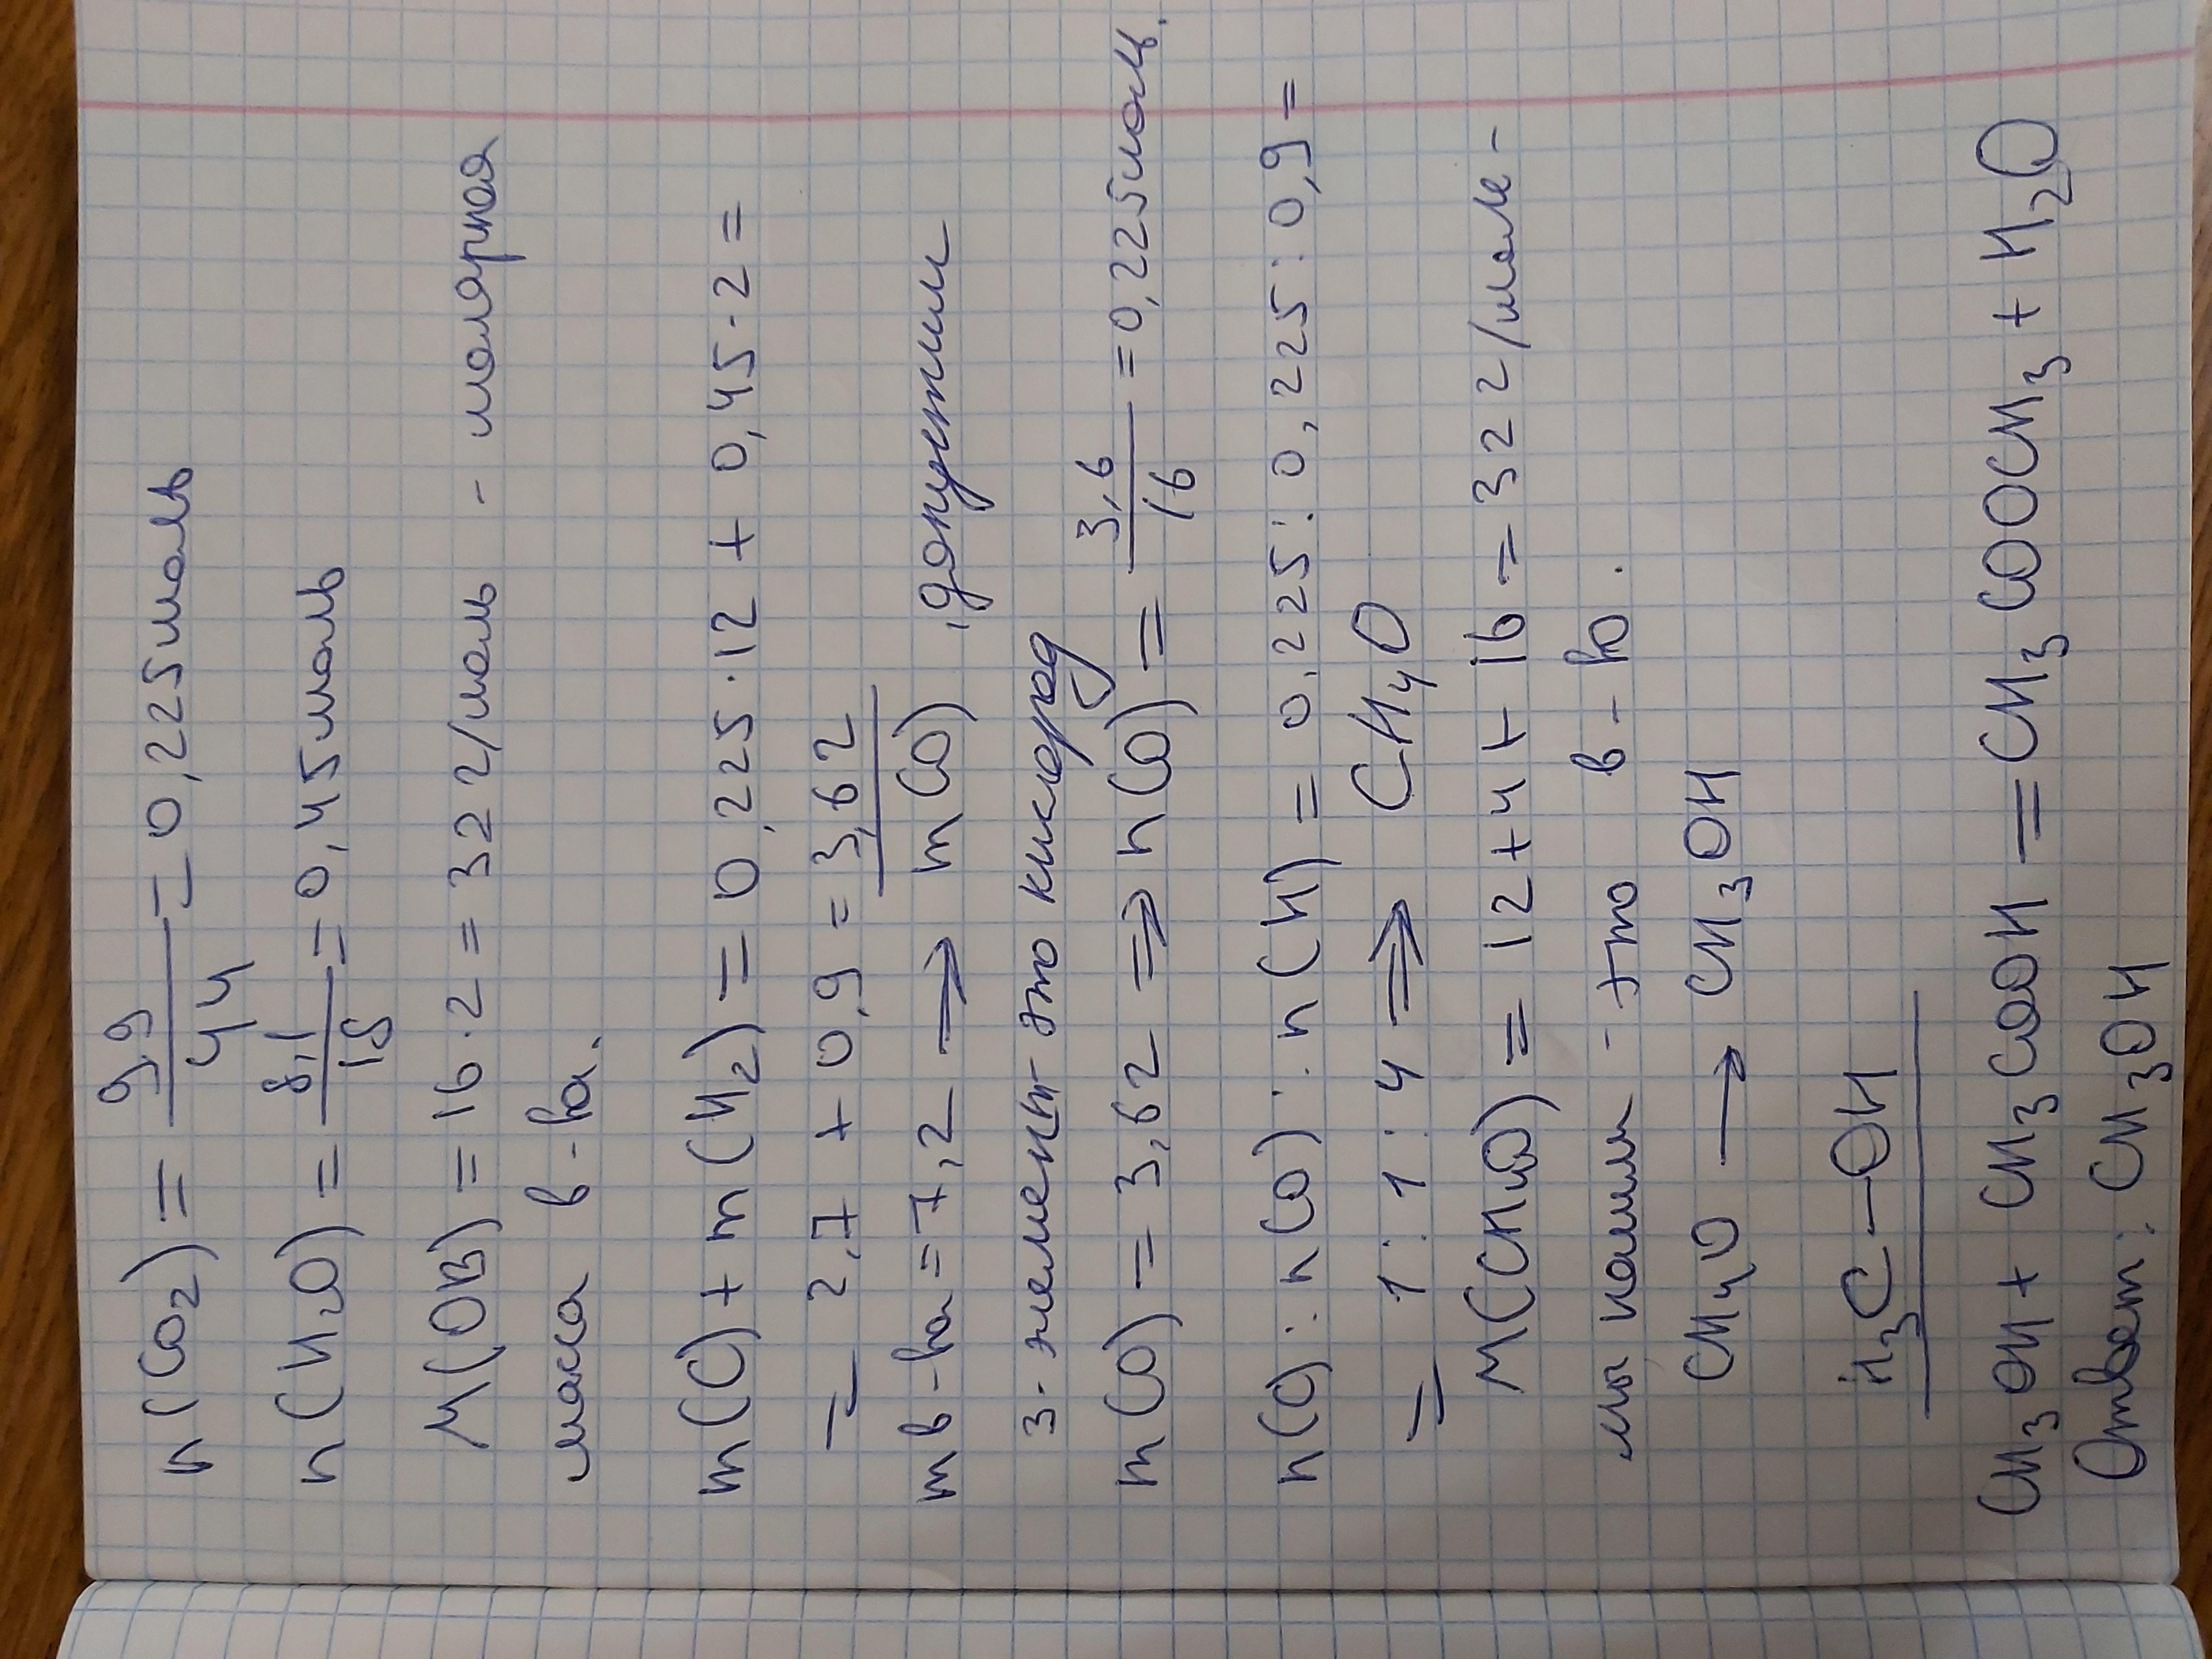 n(CO₂) = 9,9/44 = 0,225моль
n(H₂O) = 8,1/18 = 0,45моль
M(OB) = 16·2 = 32г/моль - молярная
масса в-ва.
m(C) + m(H₂) = 0,225·12 + 0,45·2 =
= 2,7 + 0,9 = 3,6г
m в-ва = 7,2 → m(O), допустим
3-элемент это кислород
m(O) = 3,6г ⇒ n(O) = 3,6/16 = 0,225моль.
n(C) : n(O) : n(H) = 0,225 : 0,225 : 0,9 =
= 1 : 1 : 4 ⇒ CH₄O
M(CH₄O) = 12+4+16 = 32г/моль -
мы нашли - это в-во.
CH₄O → CH₃OH
H₃C-OH
CH₃OH + CH₃COOH = CH₃COOCH₃ + H₂O
Ответ: CH₃OH